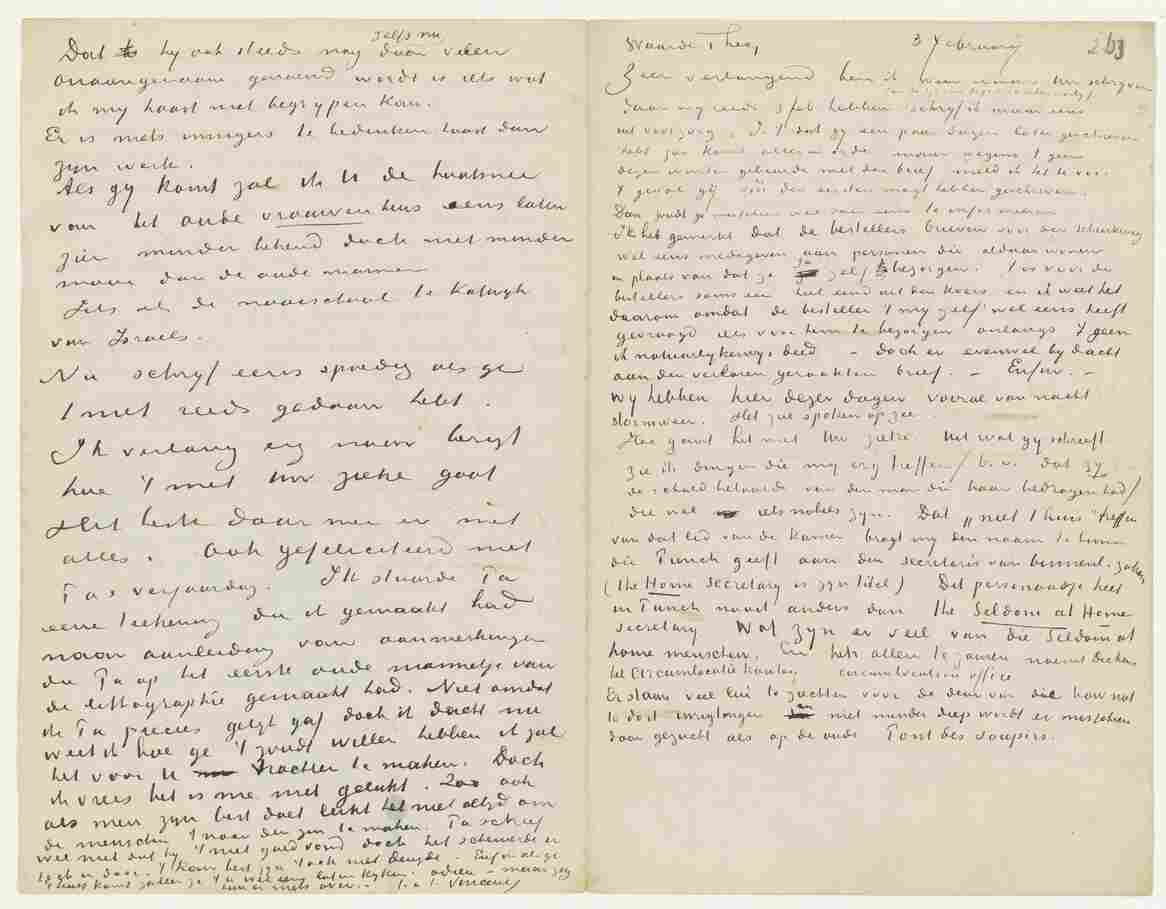 zelfs nu
Dat hy ook steeds nog door velen
onaangenaam genoemd wordt is iets wat
ik my haast niet begrypen kan.
Er is niets innigers te bedenken haast dan
zyn werk.
Als gy komt zal ik U de houtsnee
van het oude vrouwenhuis eens laten
zien minder bekend doch niet minder
mooi dan de oude mannen
Iets als de naaischool te Katwyk
van Israels.
Nu schryf eens spoedig als ge
't niet reeds gedaan hebt.
Ik verlang erg naar berigt
hoe 't met Uw zieke gaat
Het beste daar mee en met
alles. Ook gefeliciteerd met
Pa's verjaardag. Ik stuurde Pa
eene teekening die ik gemaakt had
naar aanleiding van aanmerkingen
die Pa op het eerste oude mannetje van
de lithographie gemaakt had. Niet omdat
ik Pa precies gelyk gaf doch ik dacht nu
weet ik hoe ge 't zoudt willen hebben ik zal
het voor U trachten te maken. Doch
ik vrees het is me niet gelukt. Zoo ook
als men zyn best doet lukt het niet altyd om
de menschen 't naar den zin te maken. Pa schreef
wel niet dat hy 't niet goed vond doch het schemerde er
toch er door. 't Kan best zyn 't ook niet deugde. Enfin als ge
eens komt zal ik je 't nu wel eens laten kyken. adieu – maar zeg
er niets over. – t. à t. Vincent
Waarde Theo, 3 February 263
Zeer verlangend ben ik weer eens Uw schryven
daar wy reeds 3 feb hebben schryf ik maar eens
uit voorzorg. Is 't dat gy een paar dagen later geschreven
hebt dan komt alles in orde maar wegens 't geen
dezer dagen gebeurde met den brief meld ik het te voor
't geval gij vóór den eersten mogt hebben geschreven.
Dan zoudt ge misschien wee doen eens te informeeren
Ik heb gemerkt dat de bestellers brieven voor den schenkweg
wel eens medegeven aan personen die aldaar wonen
in plaats van dat ze ze zelf bezorgen. 't is voor de
bestellers soms een heel eind uit den koers, en ik weet het
daarom omdat de besteller 't my zelf wel eens heeft
gevraagd iets voor hem te bezorgen onlangs 't geen
ik natuurlykerwys deed – doch er evenwel by dacht
aan den verloren geraakten brief. – Enfin. –
Wy hebben hier dezer dagen vooral van nacht
stormweer. Het zal spoken op zee.
Hoe gaat het met Uw zieke. Uit wat gy schreeft
zie ik dingen die my erg treffen/ b.v. dat zy
de schuld betaalde van den man die haar bedrogen had/
die wel iets nobels zyn. Dat „niet thuis" treffen
van dat lid van de Kamer bragt my den naam te binnen
die Punch geeft aan den secretaris van binnenl. zaken
(the Home Secretary is zyn titel) Dit personaadje heet
in Punch nooit anders dan the Seldom at Home
Secretary Wat zyn er veel van die Seldom at
home menschen. En hets allen te zamen noemt Dickens
het circumlocutie kantoor circumlocution office
Er staan veel lui te zuchten voor de deur van die how not
to do it inrigtingen en niet minder diep wordt er misschien
daar gezucht als op de oude Pont des soupirs.